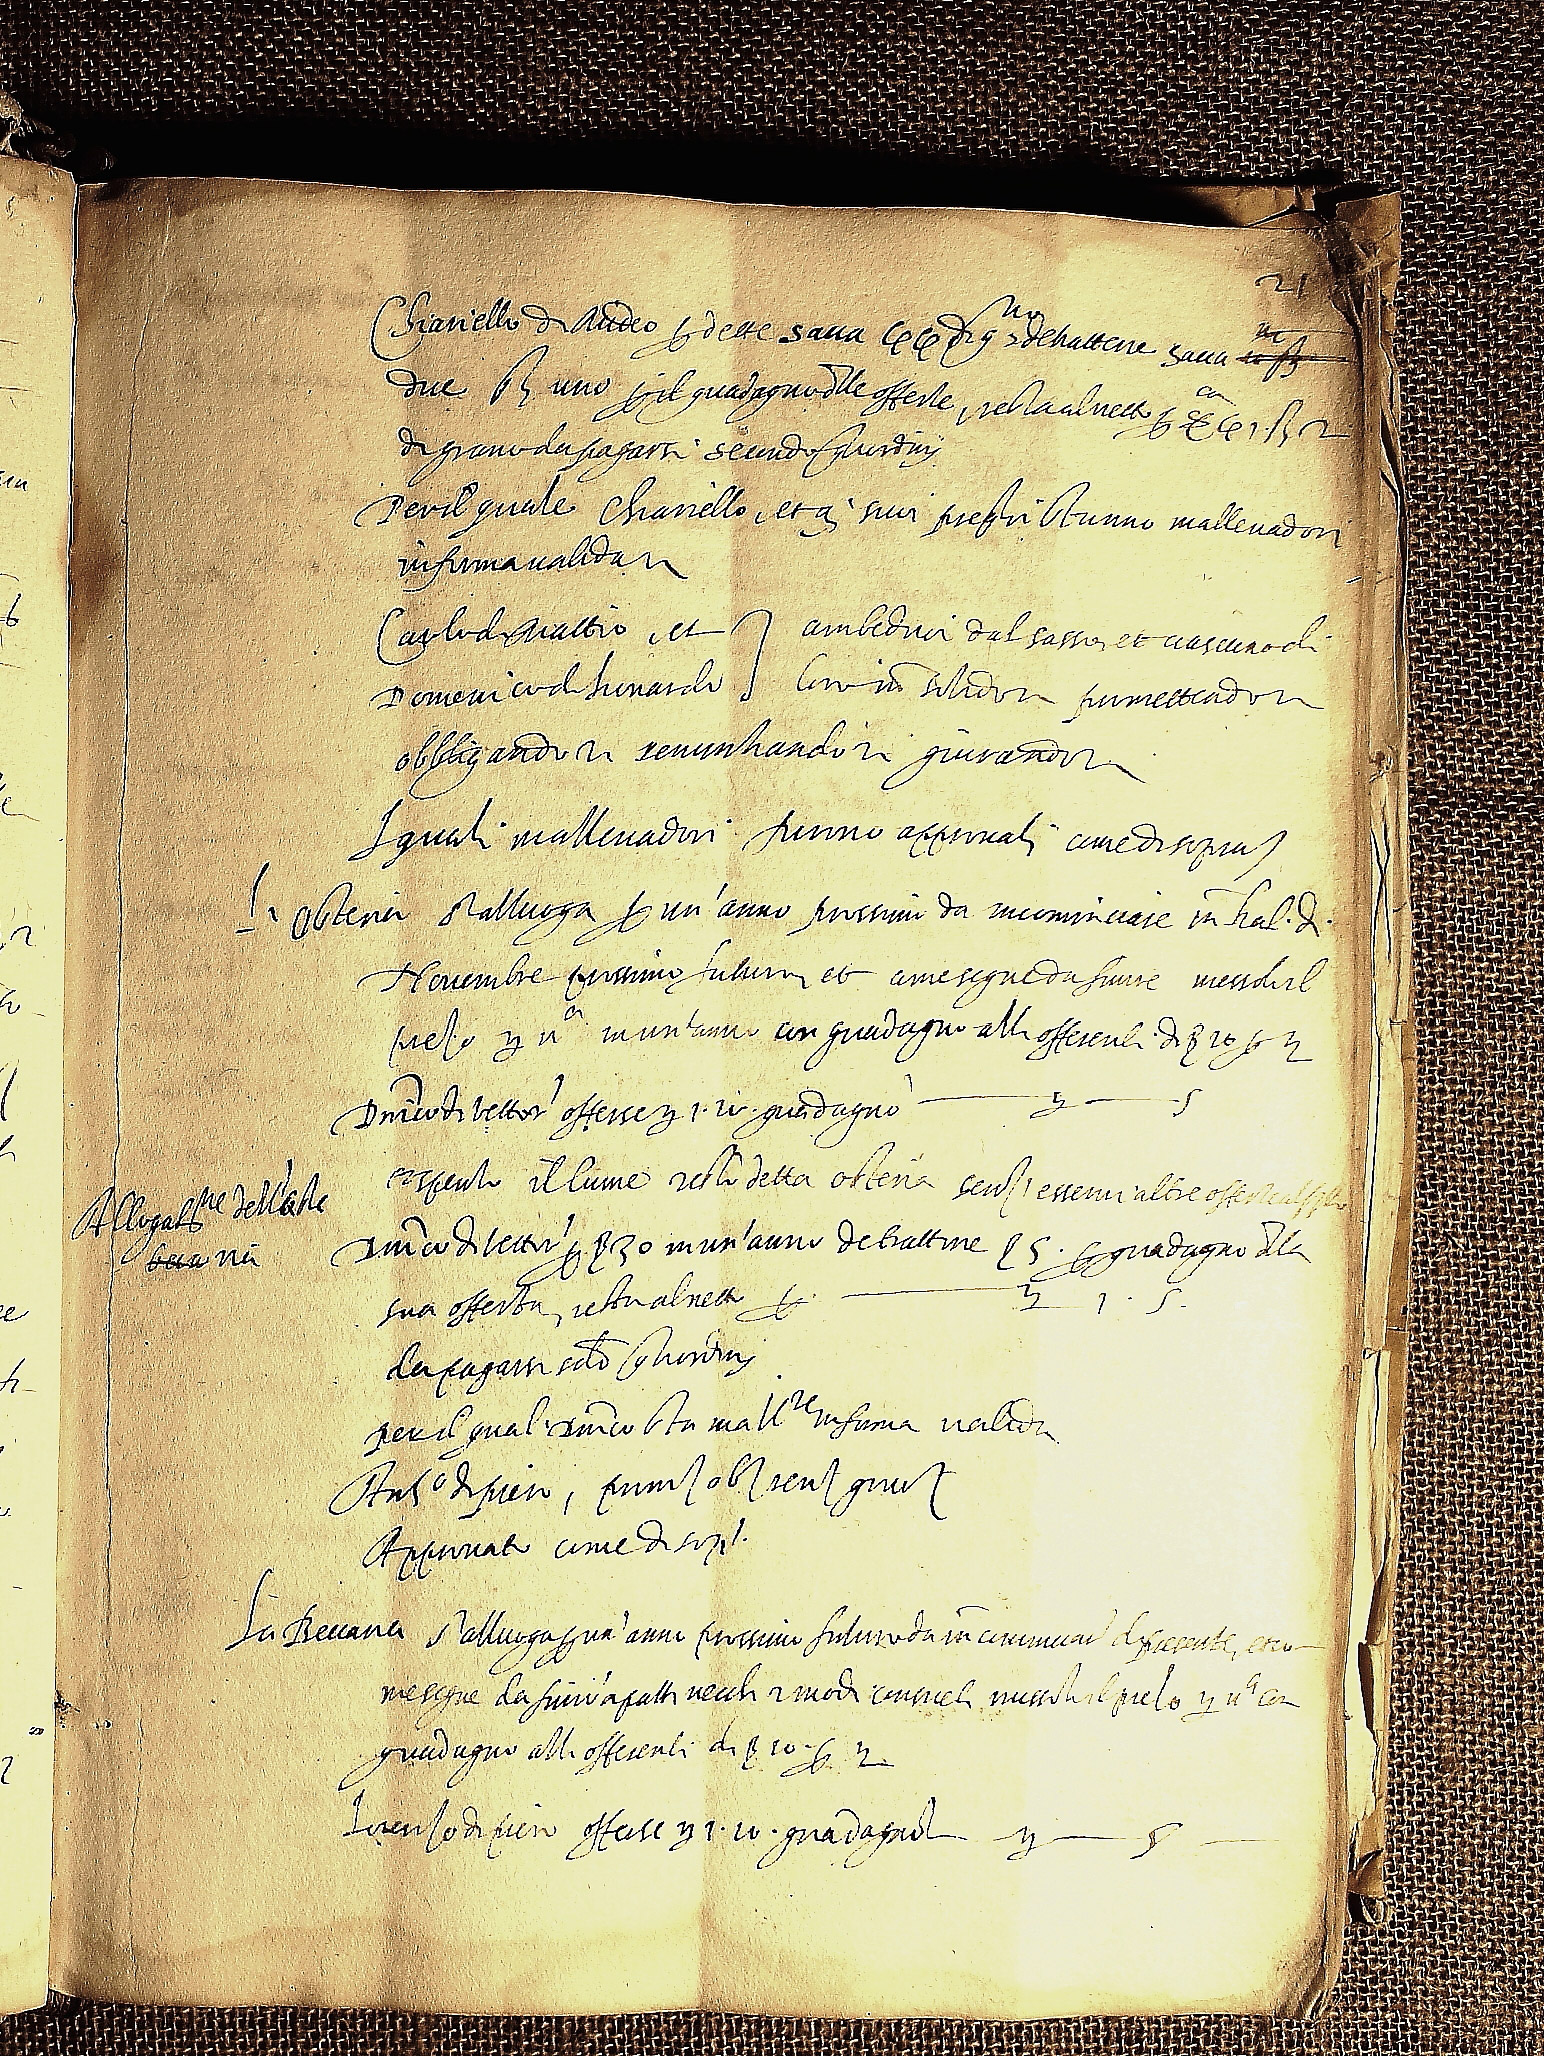 21
Chiariello di Andreo p dette sacca di g.no detrattone sacca
due st. uno p il guadagno dlle offerte, resta al netto p
di grano da pagarsi secondo gl'ordini
Per il quale Chiariello, et a suoi preghi stanno mallevadori
in forma valida
Carlo di Mattio, et ambeduoi dal Sasso, et ciascuno di
Domenico di Lionardo loro in solidum promettendo
obbligando renuntiando giurando
I quali mallevadori furno approvati come di sopra
L'Osteria s'alluoga p un'anno prossimo da incominciare in Kal. di
Novembre prossimo futuro, et come segue da finire messo il
prezo in un'anno con guadagno alli offerenti di 10 p
Dnico di Vettor' offerse 1. 10. guadagnò 5
Et spento il lume restò detta osteria senz' esservi altre offerte
Allogat.ne dell'oste
ria
Dnico di Vettor' p 30 in un'anno detrattone 5. p guadagno dlla
sua offerta, resta al netto p 1. 5.
da pagarsi secdo gl'hordini
per il qual Dnico sta mall.re in forma valida
Ant.o di Piero, prom. obl. ren. giur.
Approvato come di sop.
La Beccaria s'alluoga p un'anno prossimo futuro da incominciar' di presente, et co
me segue da finir' a patti vecchi modi consueti messo il prezo con
guadagno alli offerenti di 10 p
Lorenzo di Piero offerse 1. 10. guadagnò 5